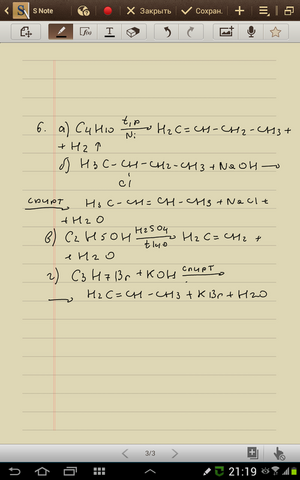 S Note
Закрыть
Сохран.
6. а) C4H10 t,p Ni → H2C=CH-CH2-CH3 +
+ H2 ↑
б) H3C-CH-CH2-CH3 + NaOH →
Cl
спирт H3C-CH=CH-CH3 + NaCl +
+ H2O
в) C2H5OH H2SO4 t140 → H2C=CH2 +
+ H2O
г) C3H7Br + KOH спирт
→ H2C=CH-CH3 + KBr + H2O
3/3
21:19